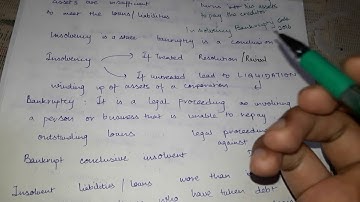 assets are insufficient
to meet the loans/liabilities
turns over his assets
to pay the creditor
Insolvency Bankruptcy Code
2016
Insolvency is a state bankruptcy is a conclusion
Insolvency
If treated Resolution/Revival
If untreated lead to LIQUIDATION
winding up of assets of a corporation
Bankruptcy: It is a legal proceeding involving
a person or business that is unable to repay
outstanding loans
legal proceeding
against
Bankrupt conclusive insolvent
Insolvent liabilities/loans more than
who have taken debt